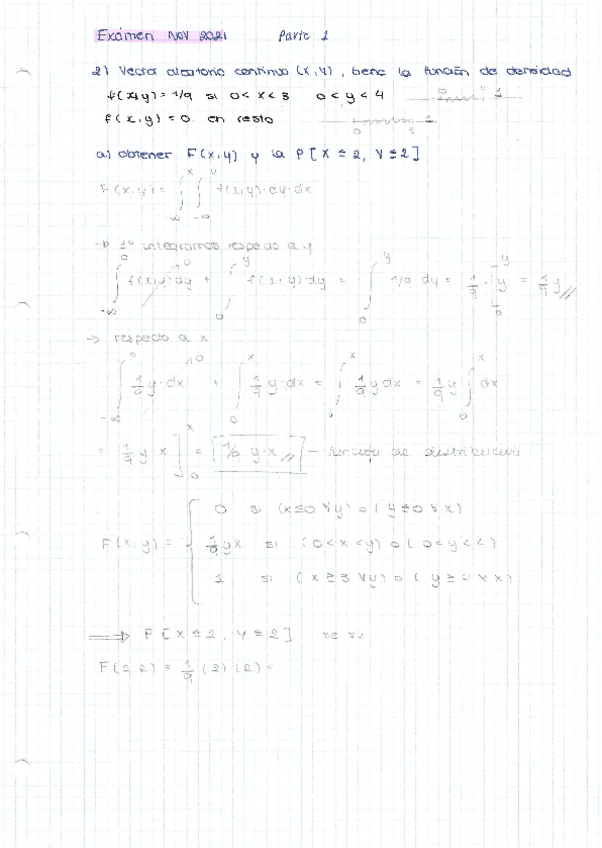 Exámen NOV 2021 Parte 1
2) Vector aleatorio continuo (X,Y), tiene la función de densidad
f(x,y) = 1/9 si 0<x<3 0<y<4
f(x,y) = 0 en resto
a) obtener F(x,y) y la P[X≤2, Y≤2]
F(x,y) = ∫ ∫ f(x,y)·dy·dx
→ 1º integramos respecto a y
∫ f(x,y)dy + ∫ f(x,y)·dy = ∫ 1/9 dy = 1/9 · y = 1/9 y //
→ respecto a x
∫ 1/9 y·dx + ∫ 1/9 y·dx = ∫ 1/9 y dx = 1/9 y ∫ dx
= 1/9 y x ] = 1/9 y·x // – función de distribución
0 si (x≤0 ∀y) o (y≤0 ∀x)
F(x,y) = 1/9 yx si (0<x<y) o (0<y<4)
1 si (x≥3 ∀y) o (y≥4 ∀x)
⟹ P[X≤2, Y≤2]
F(2,2) = 1/9 (2)(2) =